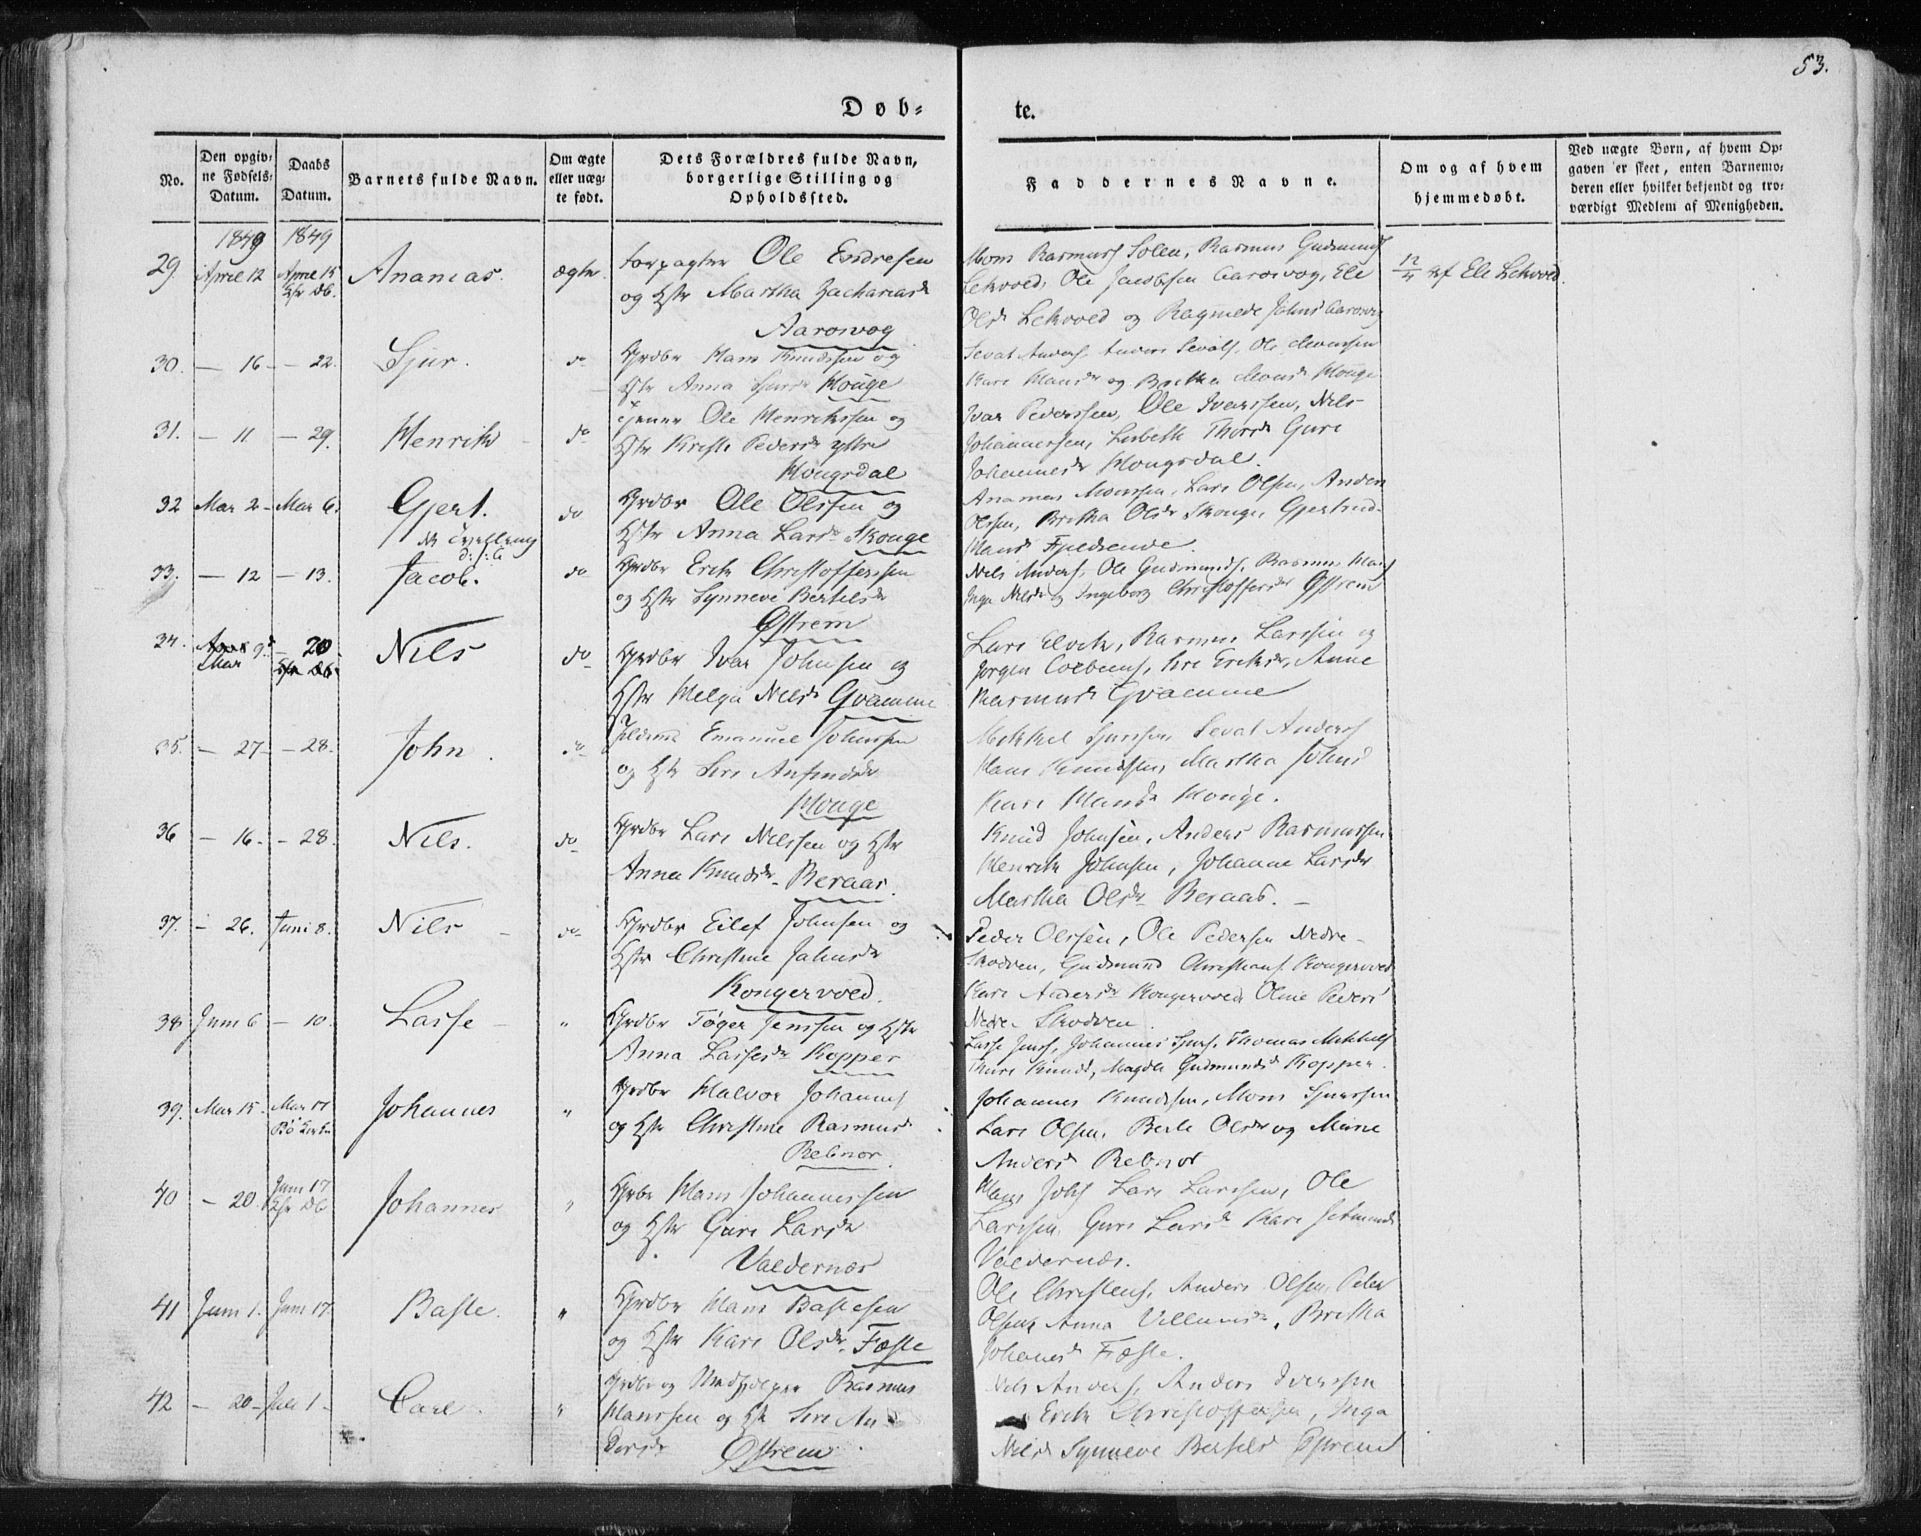 53.
Døb-
te.
No.
Den opgiv-
ne Fødsels-
Datum.
Daabs
Datum.
Barnets fulde Navn.
Om ægte
eller uæg-
te født.
Dets Forældres fulde Navn,
borgerlige Stilling og
Opholdssted.
Faddernes Navne.
Om og af hvem
hjemmedøbt.
Ved uægte Born, af hvem Op-
gaven er skeet, enten Barnemo-
deren eller hvilket bekjendt og tro-
værdigt Medlem af Menigheden.
1849 1849
29 April 12 April 15 Ananias. ægte Forpagter Ole Endresen
og Hstr Martha Zachariasdr
Aarosvog
Mons Rasmuss Solen, Rasmus Gudmunds
Lekvoed, Ole Jacobsen Aarosvog, Eli
Olsdr Lekvoed og Ragnilde Johns Aarosvog
12/4 af Eli Lekvoed.
30. — 16 - — 22. Sjur. do Grdbr Hans Knudssen og
Hstr Anna Sjursdr Houge
Sevat Anders. Anders Sevats. Ole Monssen
Kari Hansdr og Britha Monsdr Houge
31. — 11 — 29. Henrik do Tjener Ole Henrikssen og
Hstr Kirsti Pedersdr ytre
Hougsdal
Ivar Pederssen, Ole Iverssen, Nils
Johannessen, Lisbeth Thorsdr Guri
Johannesdr Hougsdal.
32 Mar 2 - Mar 6. Gjert. do Grdbr Ole Olssen og
Hstr Anna Larsdr Skouge
Ananias Monssen, Lars Olsen, Anders
Olssen, Britha Olsdr Skouge, Gjertrud
Hansdr Fjeldsende.
33. — 12 — 13. Jacob. do Grdbr Erik Christoffersen
og Hstr Synneve Bertelsdr
Østrem
Nils Anders, Ole Gudmunds, Rasmus Hans
Inga Nilsdr og Ingeborg Christoffersdr Østrem
34. Mar 9. — 20 Nils do Grdbr Ivar Johnsen og
Hstr Helga Nilsdr Qvamme
Lars Elvik, Rasmus Larssen og
Jørgen Colbens, Siri Eriksdr, Anne
Rasmusdr Qvamme
35. — 27 - — 28. John. do Emanuel Johnssen
og Hstr Siri Anfinsdr
Houge
Mikkel Sjurssen, Sevat Anders
Hans Knudssen, Martha Johns
Kari Hansdr Houge.
36 — 16. — 28. Nils. do Grdbr Lars Nilssen og Hstr
Anna Knudsdr Beraas.
Knud Johnsen, Anders Rasmussen
Henrik Johnsen, Johanna Larsdr
Martha Olsdr Beraas. —
37. — 26. Juni 8. Nils — do Grdbr Eilef Johnsen og
Hstr Christine Johnsdr
Kongervoed.
Peder Olssen, Ole Pedersen Nedre
Skodven, Gudmund Christians Kongervoed
Kari Andersdr Kongervoed Oline Peders
Nedre Skodven.
38 Juni 6 — 10. Lasse — " Grdbr Tøger Jenssen og Hstr
Anna Lassesdr Kopper
Lasse Jens, Johannes Sjurs, Thomas Mikkels
Knuds, Magdli Gudmunds Kopper.
39. Mar 15. Mar 17 Johannes " Grdbr Halvor Johannes
og Hstr Christine Rasmusdr
Rebnor.
Johannes Knudssen, Mons Sjurssen
Lars Olsen, Berte Olsdr og Marie
Andersdr Rebnor
40 — 20 Juni 17 Johannes " Grdbr Hans Johannessen
og Hstr Guri Larsdr
Valdernæs
Hans Johs Lars Larssen, Ole
Larssen, Guri Larsdr Kari
Valdernæs.
41 Juni 1. Juni 17. Baste. " Grdbr Hans Bastesen
og Hstr Kari Olsdr Fæste
Ole Christens, Anders Olsen, Peder
Olsen, Anna Villumsdr, Britha
Johanesdr Fæste.
42 — 20 - Juli 1 — Carl " Grdbr og Rasmus
Hanssen og Hstr Siri An-
dersdr Østrem
Nils Anders, Anders Iverssen
Erik Christoffersen, Inga
Nilsdr Synneve Bertelsdr Østrem